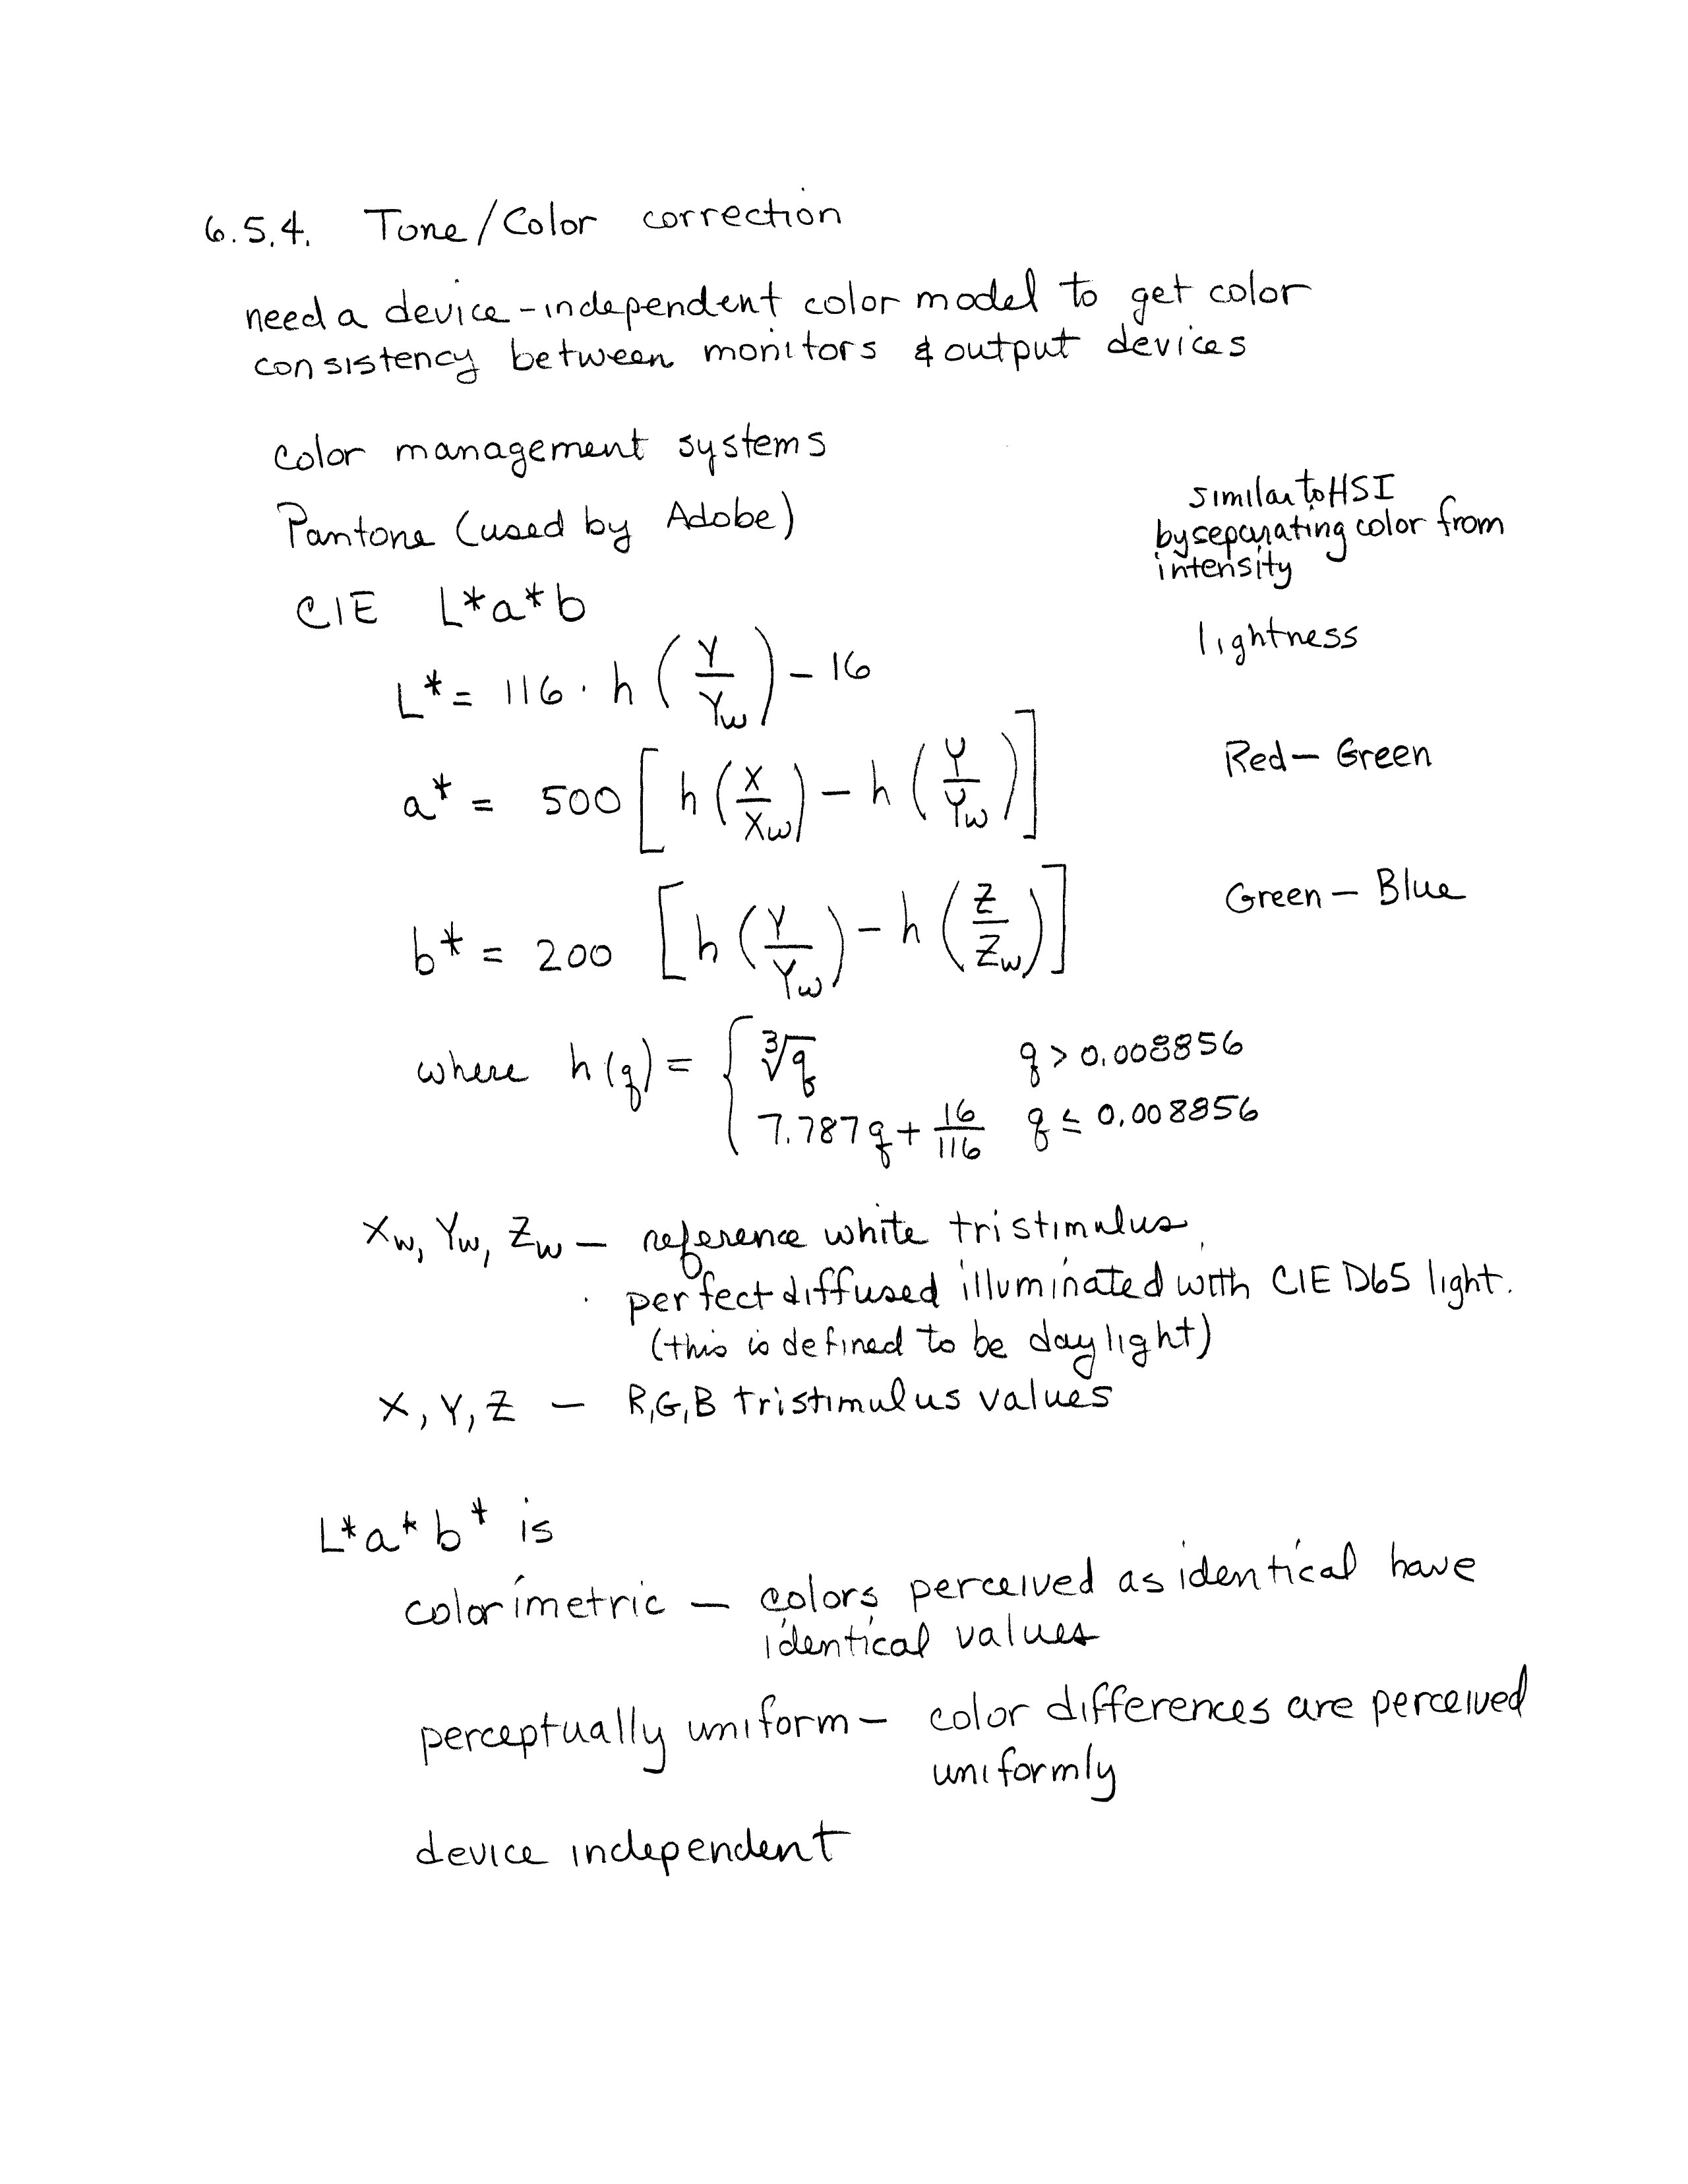 6.5.4. Tone/Color correction
need a device-independent color model to get color
consistency between monitors & output devices
color management systems
Pantone (used by Adobe)
similar to HSI
by separating color from
intensity
CIE L*a*b
L* = 116 · h (Y/Yw) - 16
lightness
a* = 500 [h (X/Xw) - h (Y/Yw)]
Red - Green
b* = 200 [h (Y/Yw) - h (Z/Zw)]
Green - Blue
where h(q) = { ∛q   q > 0.008856
7.787q + 16/116   q ≤ 0.008856
Xw, Yw, Zw - reference white tristimulus
perfect diffused illuminated with CIE D65 light.
(this is defined to be daylight)
X, Y, Z - R,G,B tristimulus values
L*a*b* is
colorimetric - colors perceived as identical have
identical values
perceptually uniform - color differences are perceived
uniformly
device independent